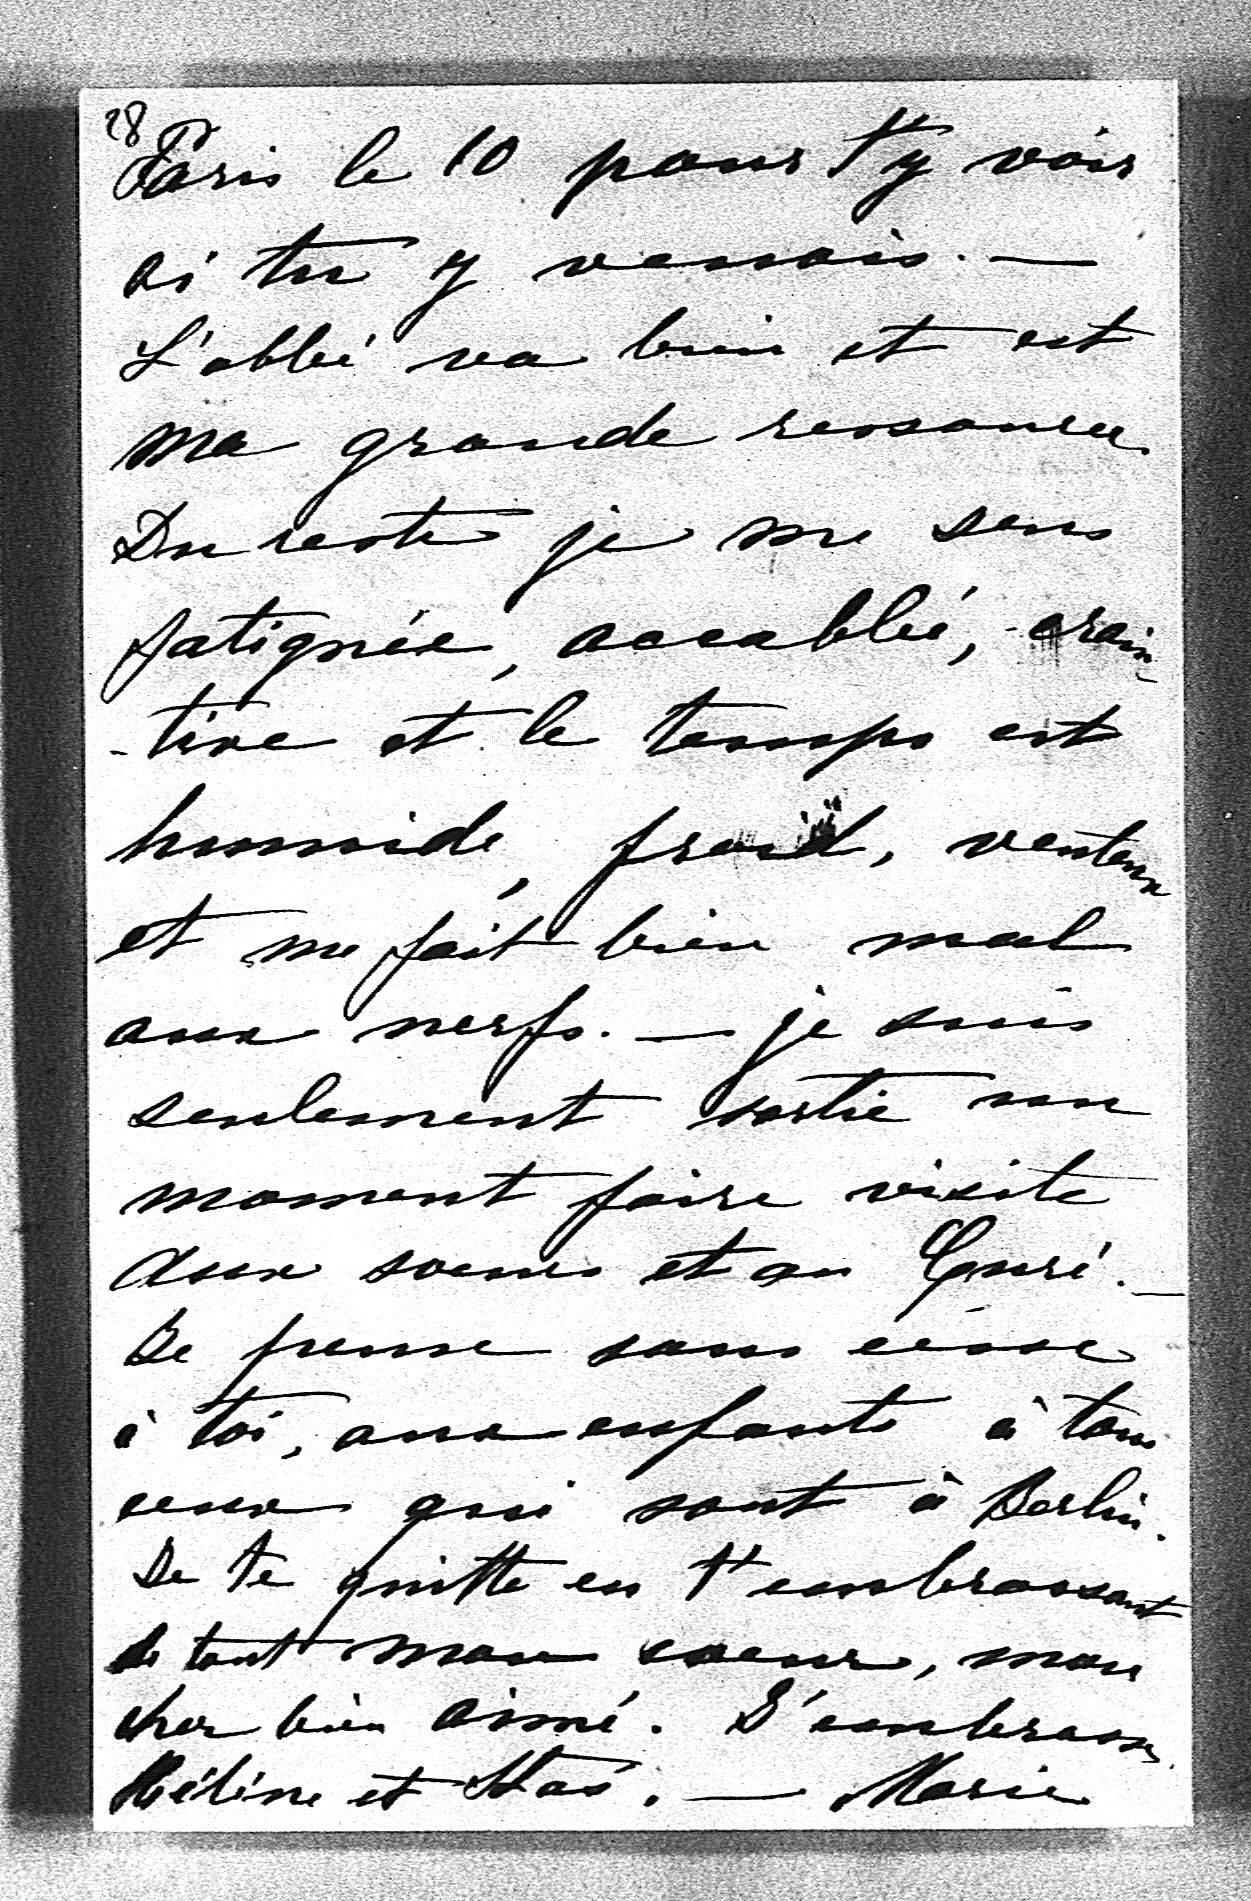 28
Paris le 10 pour t'y voir
si tu y venais. —
L'abbé va bien et est
ma grande ressource.
Du reste je me sens
fatiguée, accablée, crain-
-tive et le temps est
humide, froid, venteux
et me fait bien mal
aux nerfs. — je suis
seulement sortie un
moment faire visite
aux soeurs et au Curé. —
Je pense sans cesse
à toi, aux enfants à tous
ceux qui sont à Berlin.
Je te quitte en t'embrassant
de tout mon coeur, mon
cher bien aimé. J'embrasse
Hélène et Stas. — Marie